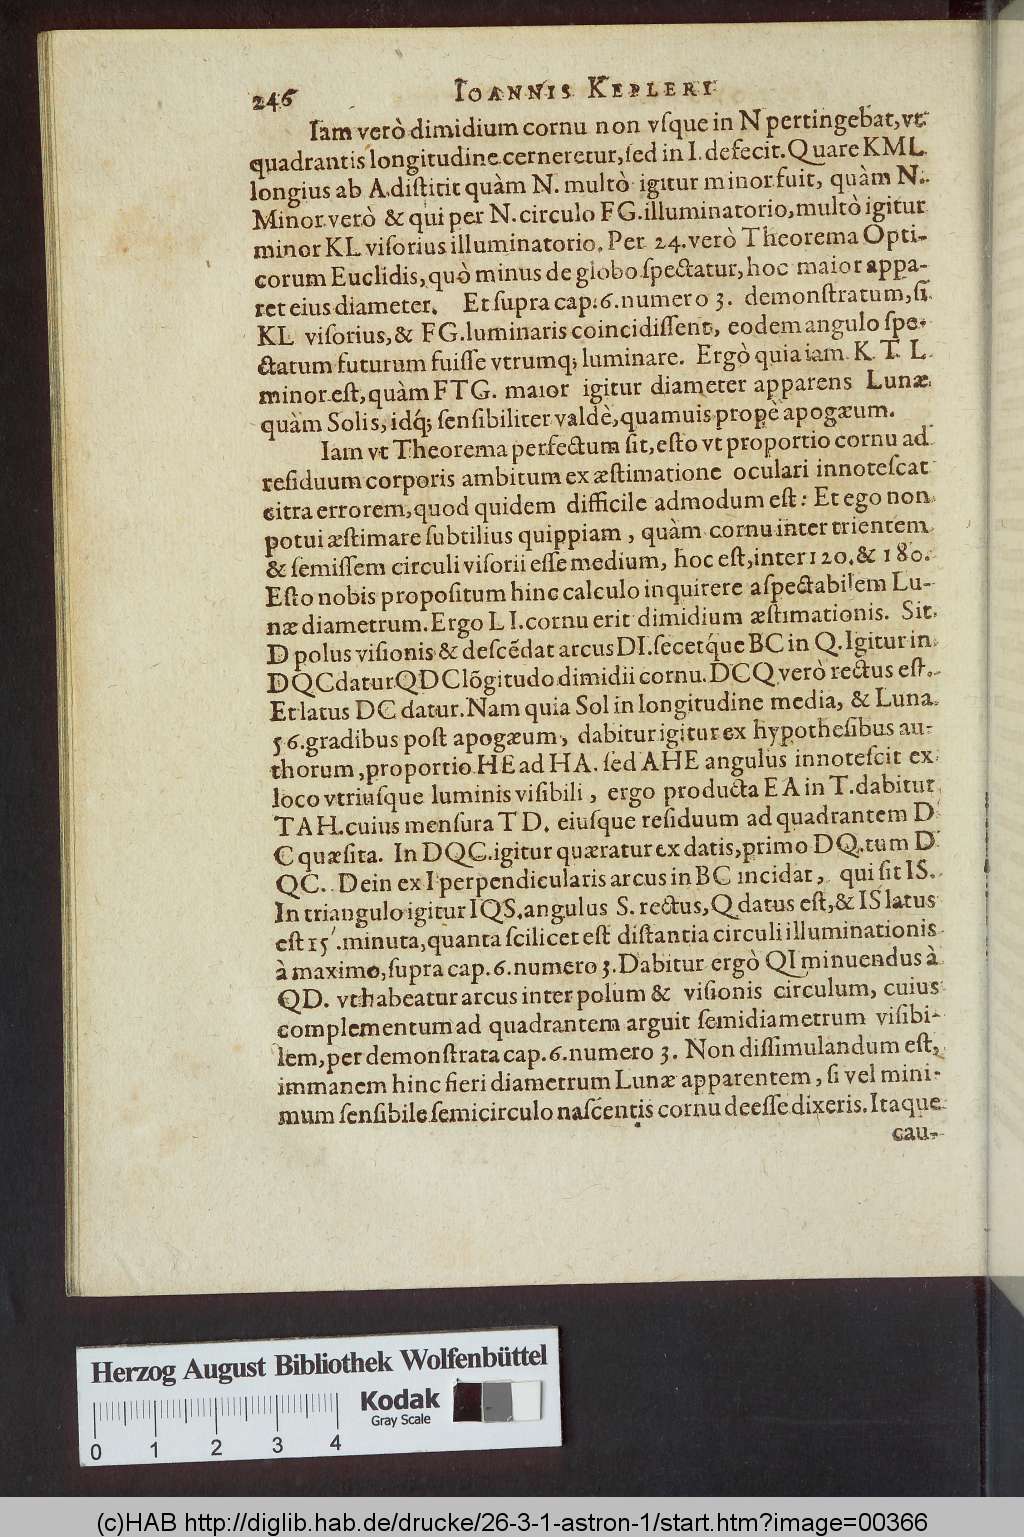 246 IOANNIS KEPLERI
Iam verò dimidium cornu non vſque in N pertingebat, vt
quadrantis longitudine cerneretur, ſed in I. defecit. Quare KML
longius ab A. diſtitit quàm N. multò igitur minor fuit, quàm N.
Minor verò & qui per N. circulo FG. illuminatorio, multò igitur
minor KL viſorius illuminatorio. Per 24. verò Theorema Opti-
corum Euclidis, quò minus de globo ſpectatur, hoc maior appa-
ret eius diameter. Et ſupra cap. 6. numero 3. demonſtratum, ſi
KL viſorius, & FG. luminaris coincidiſſent, eodem angulo ſpe-
ctatum futurum fuiſſe vtrumq; luminare. Ergò quia iam K T L
minor eſt, quàm FTG. maior igitur diameter apparens Lunæ
quàm Solis, idq́; ſenſibiliter valdè, quamuis propè apogæum.
Iam vt Theorema perfectum ſit, eſto vt proportio cornu ad
reſiduum corporis ambitum ex æſtimatione oculari innoteſcat
citra errorem, quod quidem difficile admodum eſt: Et ego non
potui æſtimare ſubtilius quippiam, quàm cornu inter trientem
& ſemiſſem circuli viſorii eſſe medium, hoc eſt, inter 120. & 180.
Eſto nobis propoſitum hinc calculo inquirere aſpectabilem Lu-
næ diametrum. Ergo LI. cornu erit dimidium æſtimationis. Sit
D polus viſionis & deſcẽdat arcus DI. ſecetq́ue BC in Q. Igitur in
DQC datur QDC lõgitudo dimidii cornu. DCQ verò rectus eſt.
Et latus DC datur. Nam quia Sol in longitudine media, & Luna
56. gradibus poſt apogæum, dabitur igitur ex hypotheſibus au-
thorum, proportio HE ad HA. ſed AHE angulus innoteſcit ex
loco vtriuſque luminis viſibili, ergo producta EA in T. dabitur
TAH. cuius menſura TD. eiuſque reſiduum ad quadrantem D
C quæſita. In DQC. igitur quæratur ex datis, primo DQ. tum D
QC. Dein ex I perpendicularis arcus in BC incidat, qui ſit IS.
In triangulo igitur IQS, angulus S. rectus, Q datus eſt, & IS latus
eſt 15′. minuta, quanta ſcilicet eſt diſtantia circuli illuminationis
à maximo, ſupra cap. 6. numero 3. Dabitur ergò QI minuendus à
QD. vt habeatur arcus inter polum & viſionis circulum, cuius
complementum ad quadrantem arguit ſemidiametrum viſibi-
lem, per demonſtrata cap. 6. numero 3. Non diſſimulandum eſt,
immanem hinc fieri diametrum Lunæ apparentem, ſi vel mini-
mum ſenſibile ſemicirculo naſcentis cornu deeſſe dixeris. Itaque
cau-
Herzog August Bibliothek Wolfenbüttel
Kodak
Gray Scale
0 1 2 3 4
(c)HAB http://diglib.hab.de/drucke/26-3-1-astron-1/start.htm?image=00366